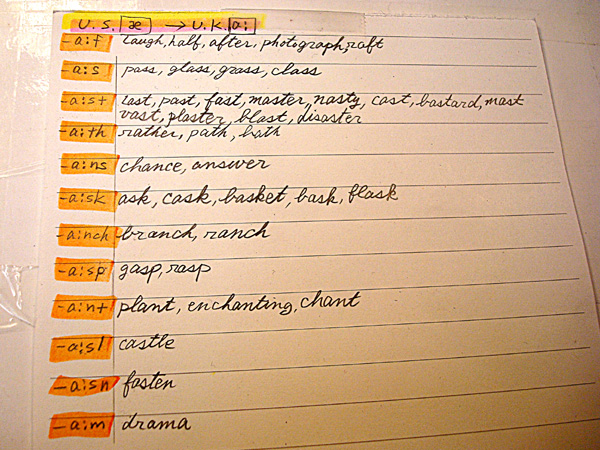 U.S. æ → U.K. a:
-a:f laugh, half, after, photograph, raft
-a:s pass, glass, grass, class
-a:st last, past, fast, master, nasty, cast, bastard, mast
vast, plaster, blast, disaster
-a:th rather, path, bath
-a:ns chance, answer
-a:sk ask, cask, basket, bask, flask
-a:nch branch, ranch
-a:sp gasp, rasp
-a:nt plant, enchanting, chant
-a:sl castle
-a:sn fasten
-a:m drama